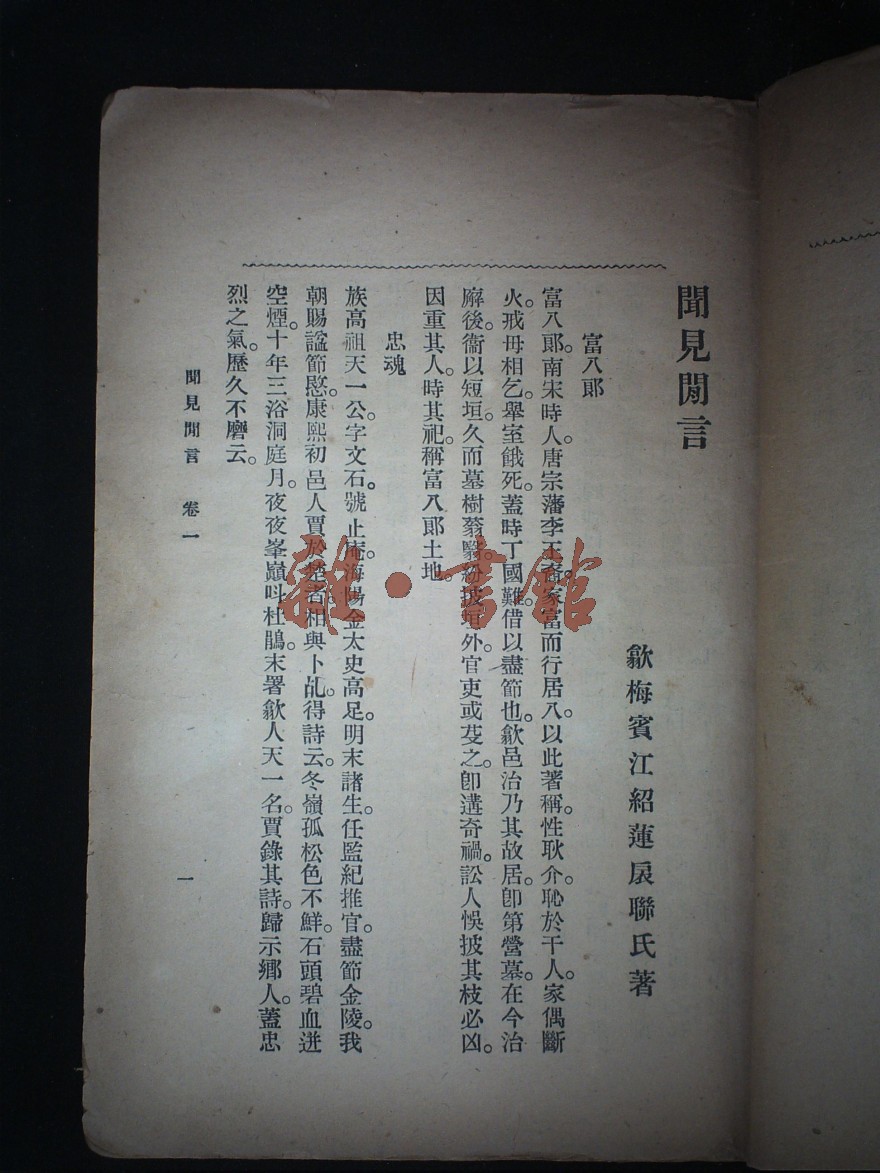 聞見閒言
歙梅賓江紹蓮扆聯氏著
富八郎
富八郎。南宋時人。唐宗藩李王裔。家富而行居八。以此著稱。性耿介。恥於干人。家偶斷
火。戒毋相乞。舉室餓死。蓋時丁國難。借以盡節也。歙邑治乃其故居。卽第營墓。在今治
廨後。衞以短垣。久而墓樹蓊翳。紛披垣外。官吏或芟之。卽遘奇禍。訟人悞披其枝必凶。
因重其人。時其祀。稱富八郎土地。
忠魂
族高祖天一公。字文石。號止庵。海陽金太史高足。明末諸生。任監紀推官。盡節金陵。我
朝賜謚節愍。康熙初邑人賈於楚者。相與卜乩。得詩云。冬嶺孤松色不鮮。石頭碧血迸
空煙。十年三浴洞庭月。夜夜峯巔叫杜鵑。末署歙人天一名。賈錄其詩。歸示鄉人。蓋忠
烈之氣。歷久不磨云。
聞見閒言 卷一
一
雜·書館